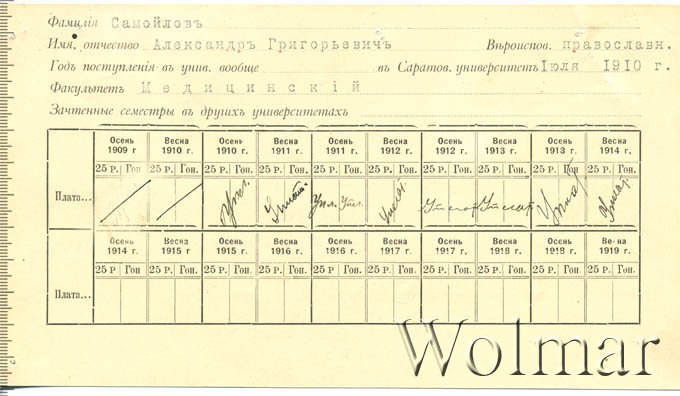 Фамилія Самойловъ
Имя, отчество Александръ Григорьевичъ Вѣроиспов. православн.
Годъ поступленія въ унив. вообще въ Саратов. университетъ Iюля 1910 г.
Факультетъ Медицинскій
Зачтенные семестры въ другихъ университетахъ
Осень 1909 г Весна 1910 г. Осень 1910 г. Весна 1911 г. Осень 1911 г. Весна 1912 г. Осень 1912 г. Весна 1913 г. Осень 1913 г. Весна 1914 г.
25 Р. Гон 25 Р. Гон. 25 Р. Гон. 25 Р. Гон. 25 Р. Гон. 25 Р. Гон. 25 Р. Гон. 25 Р. Гон. 25 Р. Гон 25 Р. Гон.
Плата... Упл. Упл.
Осень 1914 г. Весна 1915 г Осень 1915 г. Весна 1916 г. Осень 1916 г. Весна 1917 г. Осень 1917 г. Весна 1918 г. Осень 1918 г. Весна 1919 г.
25 Р Гон. 25 Р. Гон. 25 Р. Гон. 25 Р. Гон. 25 Р. Гон. 25 Р. Гон. 25 Р. Гон. 25 Р. Гон. 25 Р. Гон. 25 Р. Гон.
Плата...
Wolmar